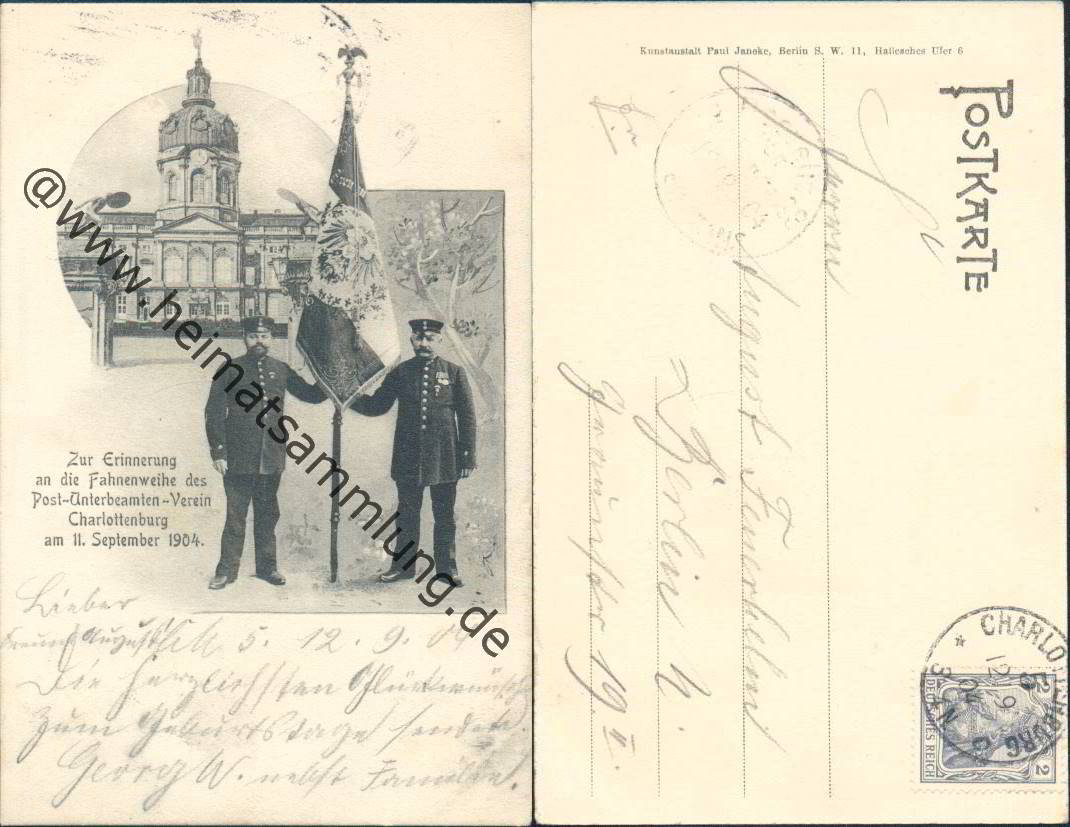 Zur Erinnerung
an die Fahnenweihe des
Post-Unterbeamten-Verein
Charlottenburg
am 11. September 1904.
Lieber
Freund August 5. 12. 9. 04
Die herzlichsten Glückwünsche
zum Geburtstage senden
Georg W. nebst Familie.
@www.heimatsammlung.de
Kunstanstalt Paul Jancke, Berlin S. W. 11, Hallesches Ufer 6
POSTKARTE
Herrn
August
Berlin N.
19 II.
CHARLOTTENBURG
12 9
04
DEUTSCHES REICH
2
2